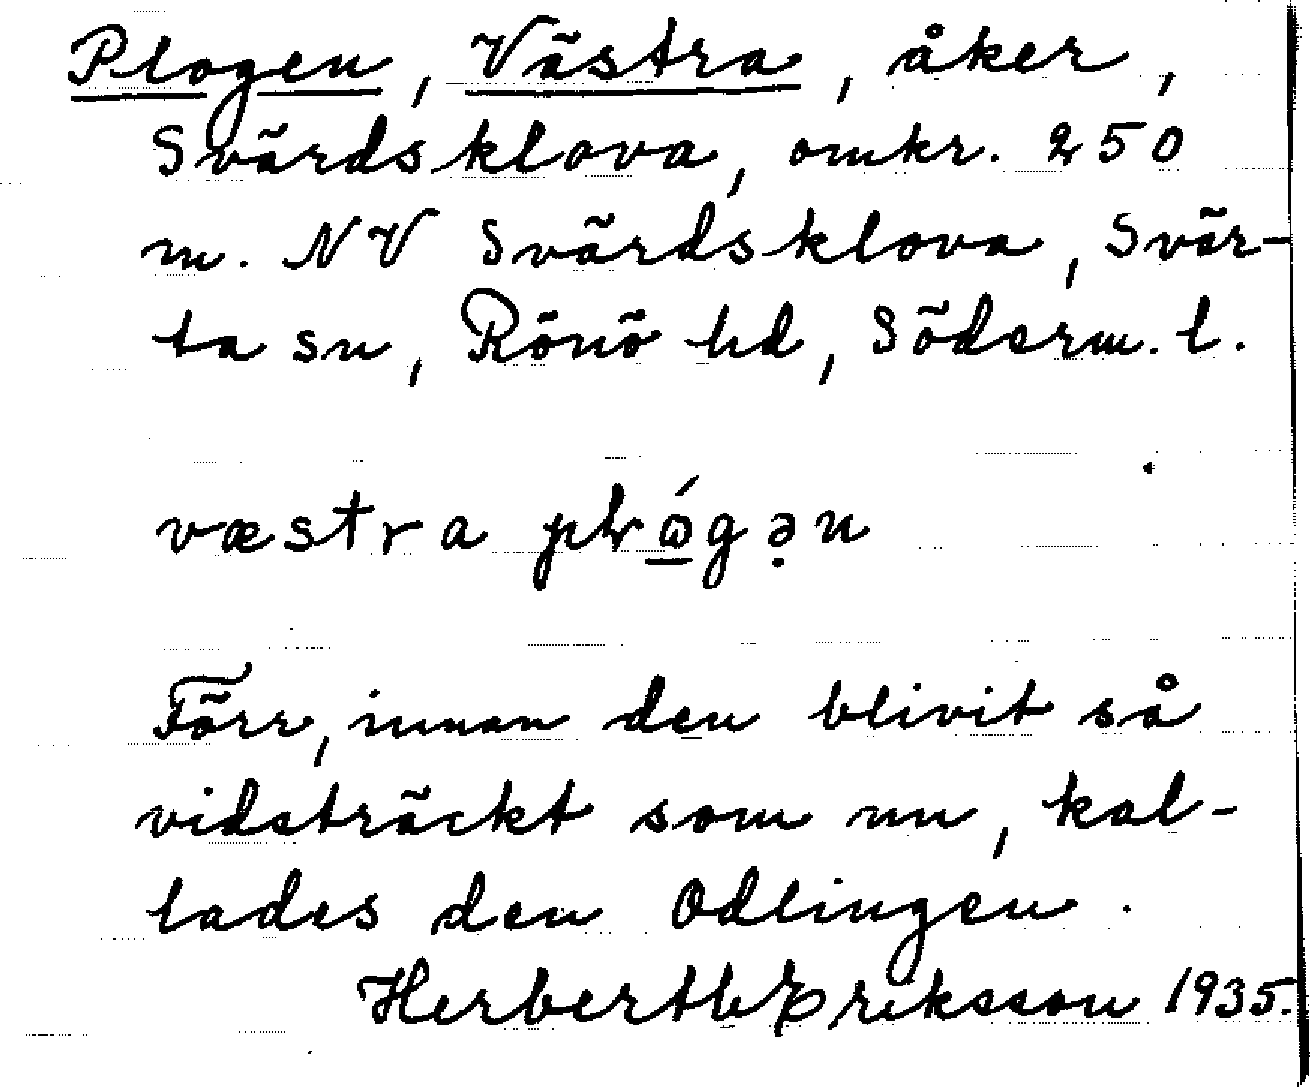 Plogen, Västra, åker,
Svärdsklova, omkr. 250
m. NV Svärdsklova, Svär-
ta sn, Rönö hd, Söderm. l.
væstra
Förr, innan den blivit så
vidsträckt som nu, kal-
lades den Odlingen.
Herbert Eriksson 1935.